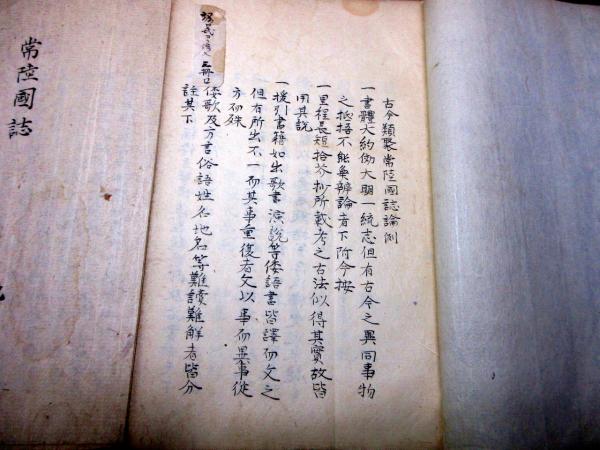 古今類聚常陸國誌論例
一書體大約倣大明一統志但有古今之異同事物
之抵捂不能無辨論者下附今按
一里程長短拾芥抄所載考之古法似得其實故皆
用其說
一援引書籍如出歌書演說等倭語書皆譯而文之
但有所出不一而其事重復者文以事而異事從
方而殊
一倭歌及方書俗語姓名地名等難讀難解者皆分
註其下
常陸國誌